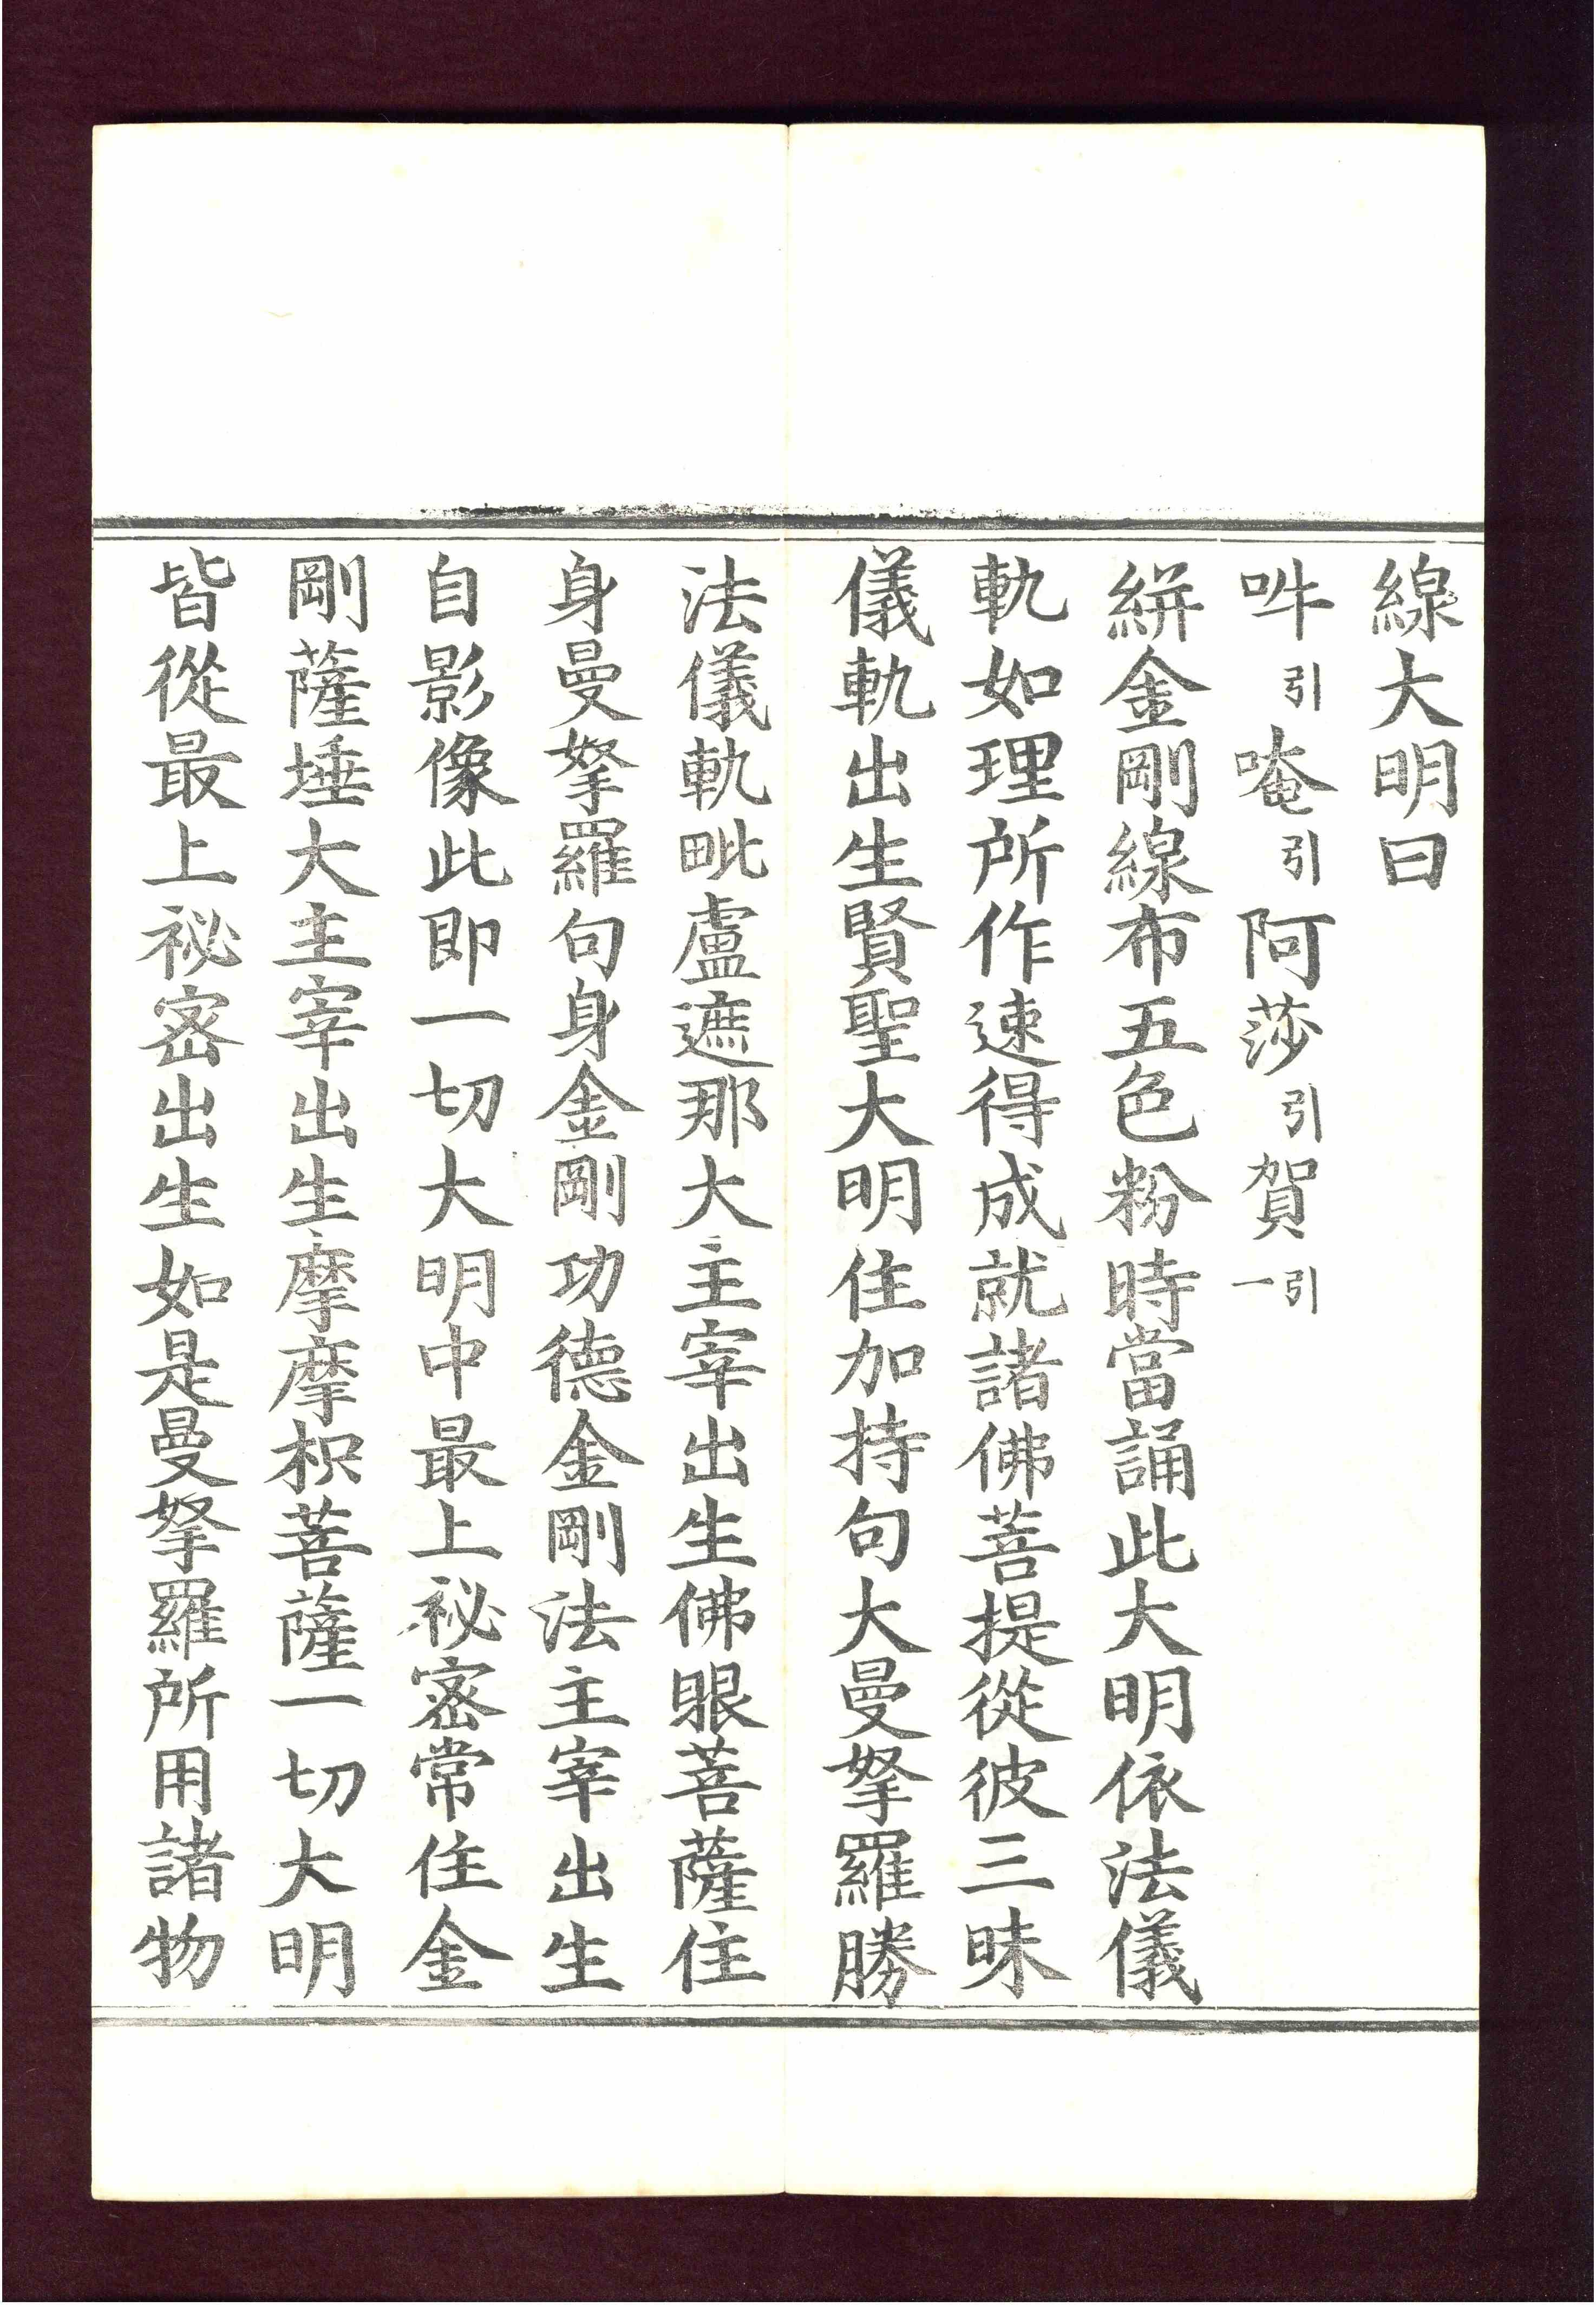 線大明曰
吽引唵引阿莎引賀引一
絣金剛線布五色粉時當誦此大明依法儀
軌如理所作速得成就諸佛菩提從彼三昧
儀軌出生賢聖大明住加持句大曼拏羅勝
法儀軌毗盧遮那大主宰出生佛眼菩薩住
身曼拏羅句身金剛功德金剛法主宰出生
自影像此即一切大明中最上祕密常住金
剛薩埵大主宰出生摩摩枳菩薩一切大明
皆從最上祕密出生如是曼拏羅所用諸物